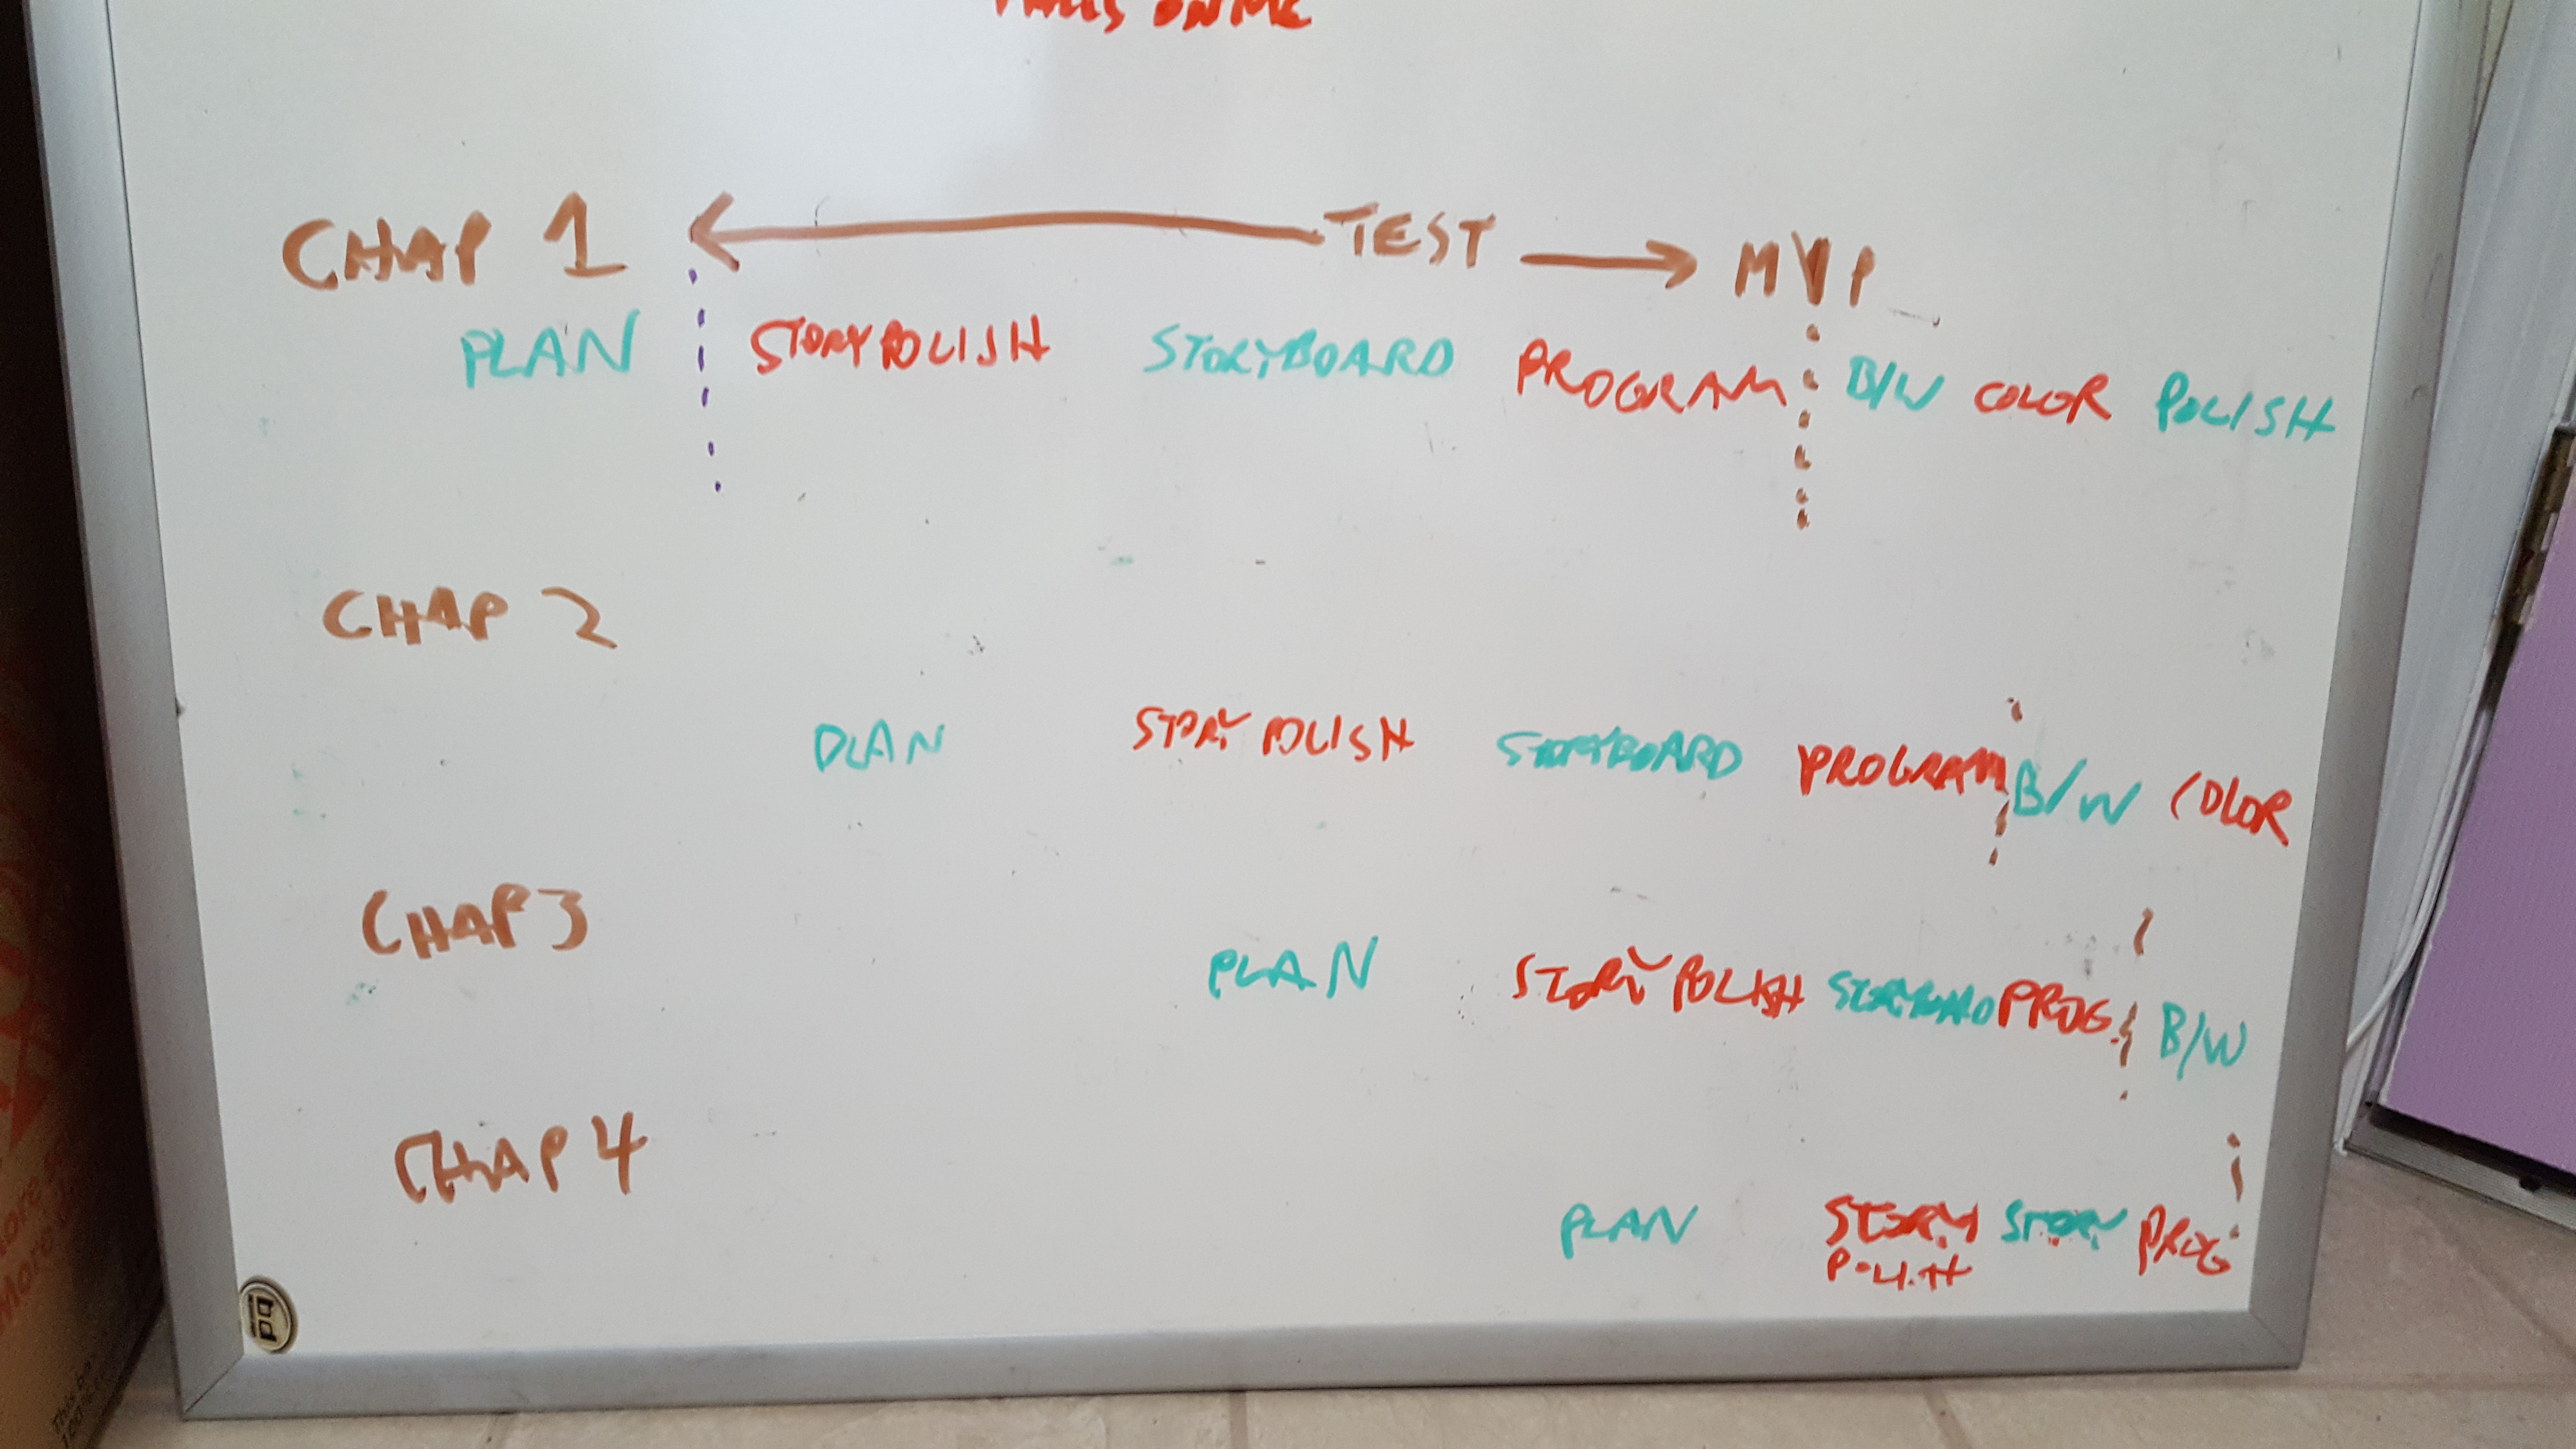 ON ME
CHAP 1 TEST MVP
PLAN STORY POLISH STORYBOARD PROGRAM B/W COLOR POLISH
CHAP 2
PLAN STORY POLISH STORYBOARD PROGRAM B/W COLOR
CHAP 3
PLAN STORY POLISH STORYBOARD PROG. B/W
CHAP 4
PLAN STORY STORY PROG
POLISH
pq
More